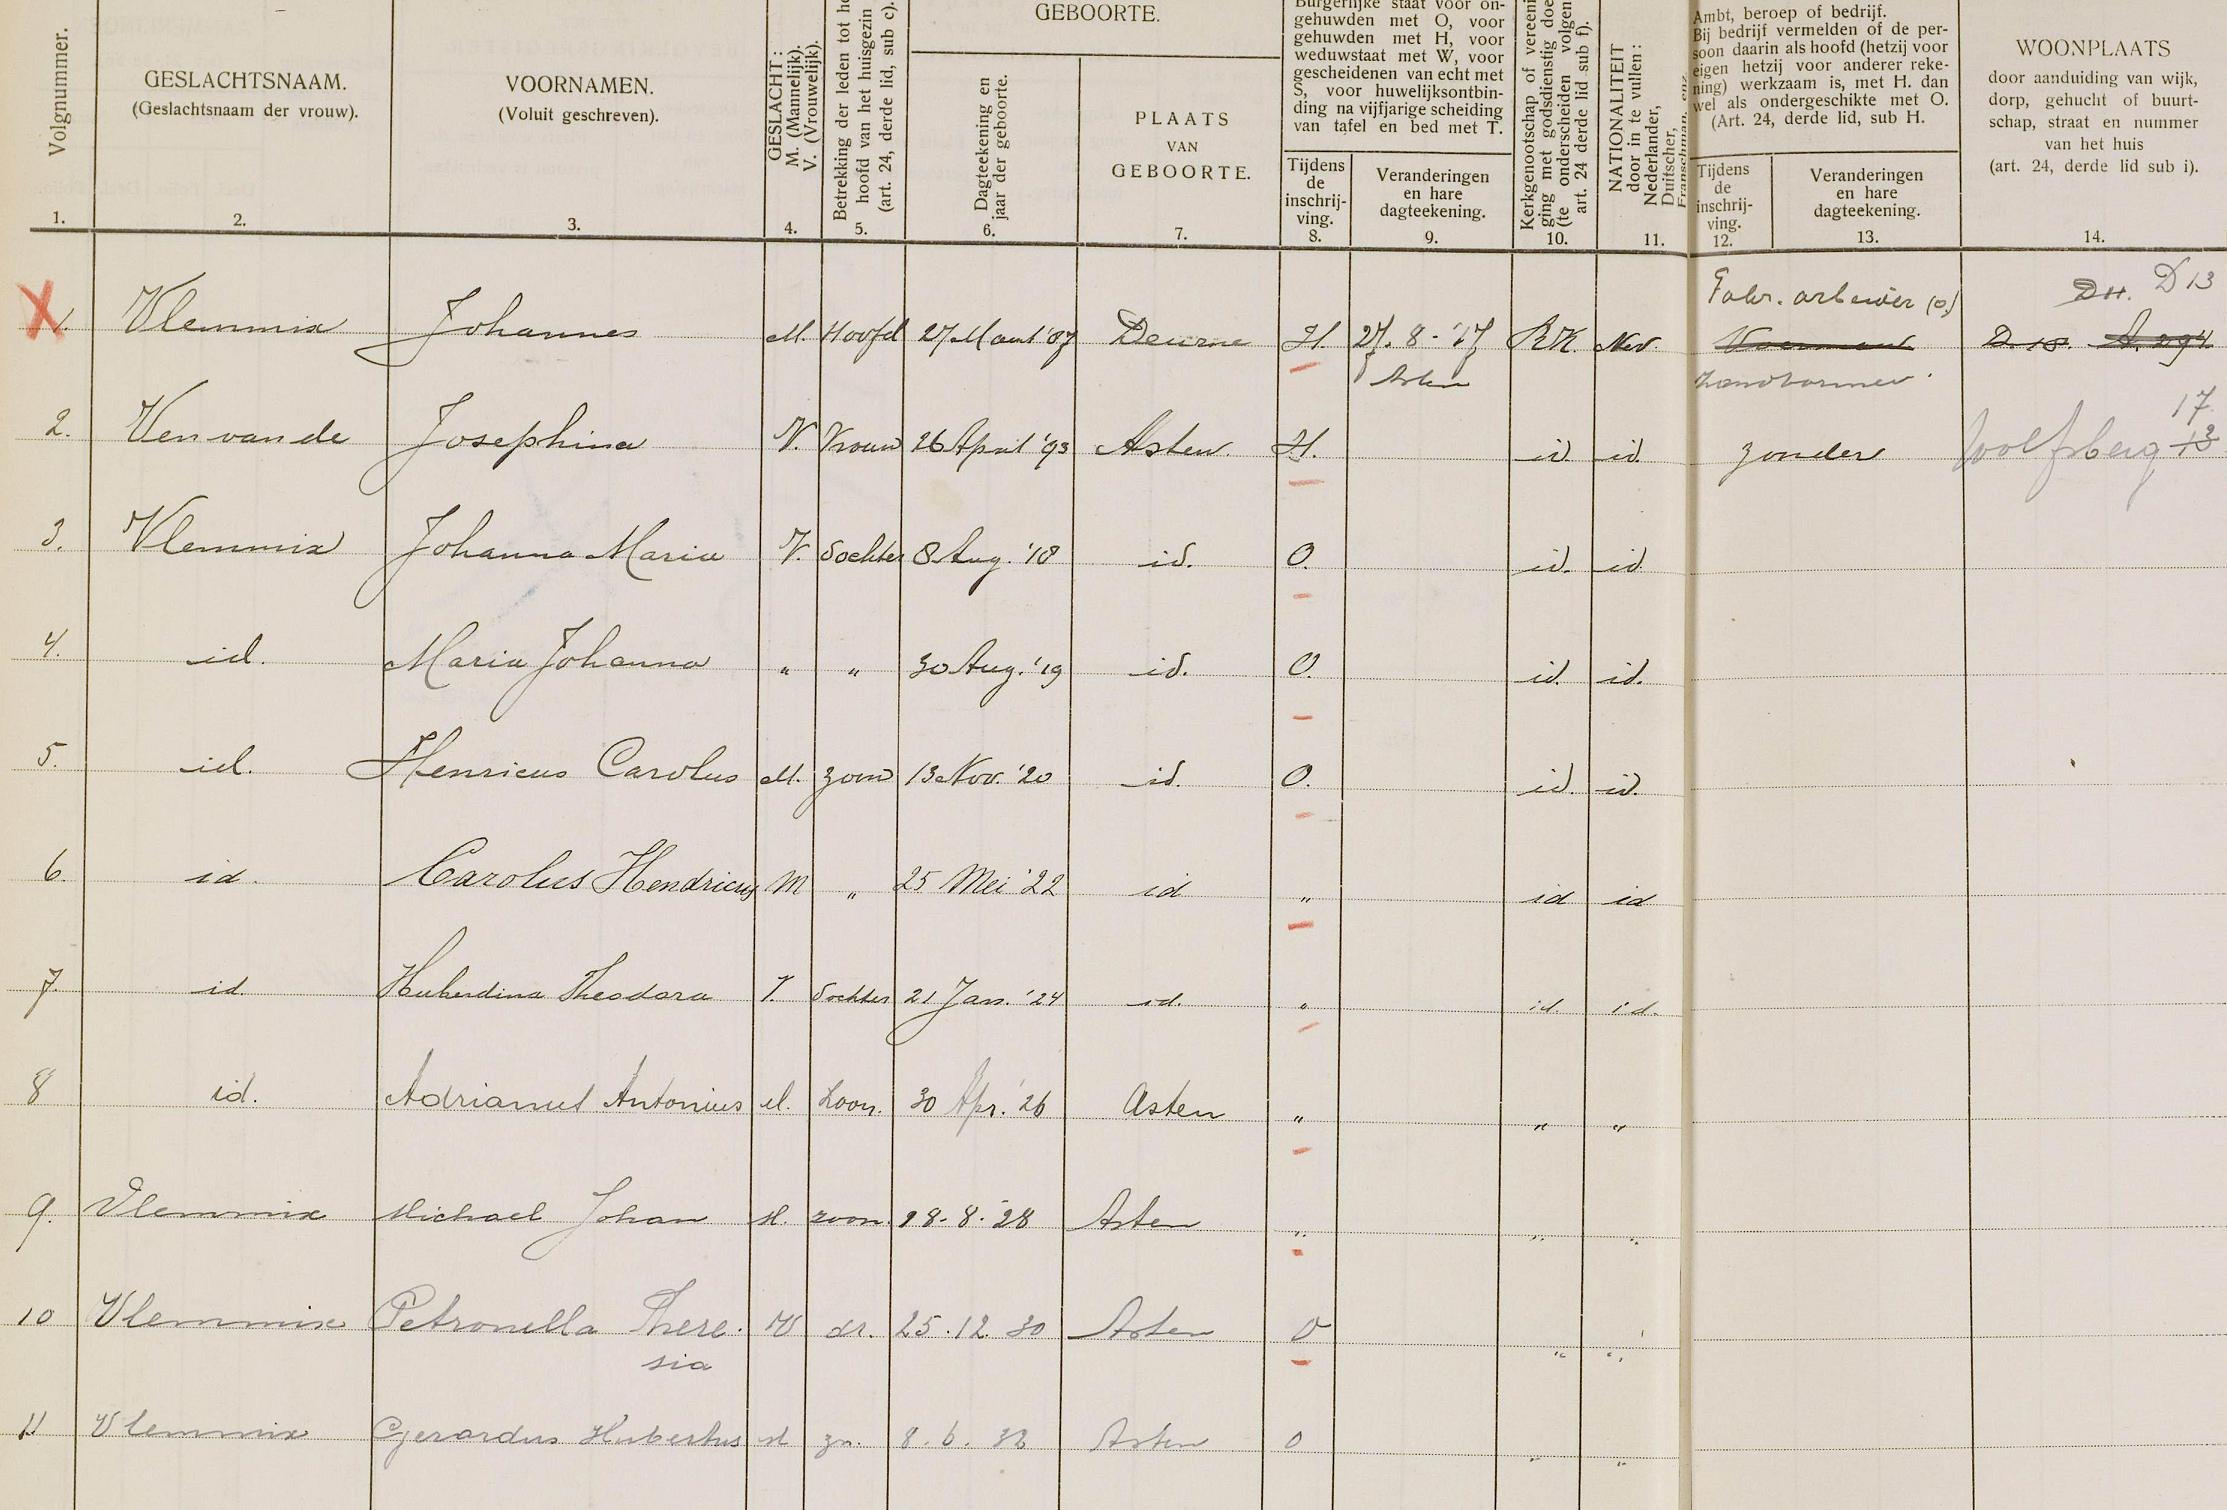 Volgnummer.
1.
GESLACHTSNAAM.
(Geslachtsnaam der vrouw).
2.
VOORNAMEN.
(Voluit geschreven).
3.
GESLACHT:
M. (Mannelijk).
V. (Vrouwelijk).
4.
Betrekking der leden tot h
hoofd van het huisgezin
(art. 24, derde lid, sub c).
5.
GEBOORTE.
Dagteekening en
jaar der geboorte.
6.
PLAATS
VAN
GEBOORTE.
7.
Burgerlijke staat voor on-
gehuwden met O, voor
gehuwden met H, voor
weduwstaat met W, voor
gescheidenen van echt met
S, voor huwelijksontbin-
ding na vijfjarige scheiding
van tafel en bed met T.
Tijdens
de
inschrij-
ving.
8.
Veranderingen
en hare
dagteekening.
9.
Kerkgenootschap of vereeni
ging met godsdienstig doe
(te onderscheiden volgen
art. 24 derde lid sub f).
10.
NATIONALITEIT
door in te vullen:
Nederlander,
Duitscher,
Franschman, enz.
11.
Ambt, beroep of bedrijf.
Bij bedrijf vermelden of de per-
soon daarin als hoofd (hetzij voor
eigen hetzij voor anderer reke-
ning) werkzaam is, met H. dan
wel als ondergeschikte met O.
(Art. 24, derde lid, sub H.
Tijdens
de
inschrij-
ving.
12.
Veranderingen
en hare
dagteekening.
13.
WOONPLAATS
door aanduiding van wijk,
dorp, gehucht of buurt-
schap, straat en nummer
van het huis
(art. 24, derde lid sub i).
14.
Fabr. arbeider (o) D 11. D 13
X 1. Vlemmix Johannes M. Hoofd 27 Maart '87 Deurne H. 27. 8 - '17 R.K. Ned. D. 18. A. 294
Asten
2. Ven van de Josephina V. Vrouw 26 April '93 Asten H. id. id. zonder Wolfsberg 13 17
3. Vlemmix Johanna Maria V. dochter 8 Aug. '18 id. O. id. id.
4. id. Maria Johanna " " 30 Aug. '19 id. O. id. id.
5. id. Henricus Carolus M. zoon 13 Nov. '20 id. O. id. id.
6. id. Carolus Hendricus M " 25 Mei '22 id " id id
7. id Huberdina Theodora V. dochter 21 Jan. '24 id. " id. id.
8 id. Adrianus Antonius M. Zoon. 30 Apr. '26 Asten " " "
9. Vlemmix Michael Johan M. zoon. 18-8-28 Asten " " "
10 Vlemmix Petronella There- V dr. 25.12.30 Asten O " "
sia
11 Vlemmix Gerardus Hubertus M zn. 8.6. Asten O " "